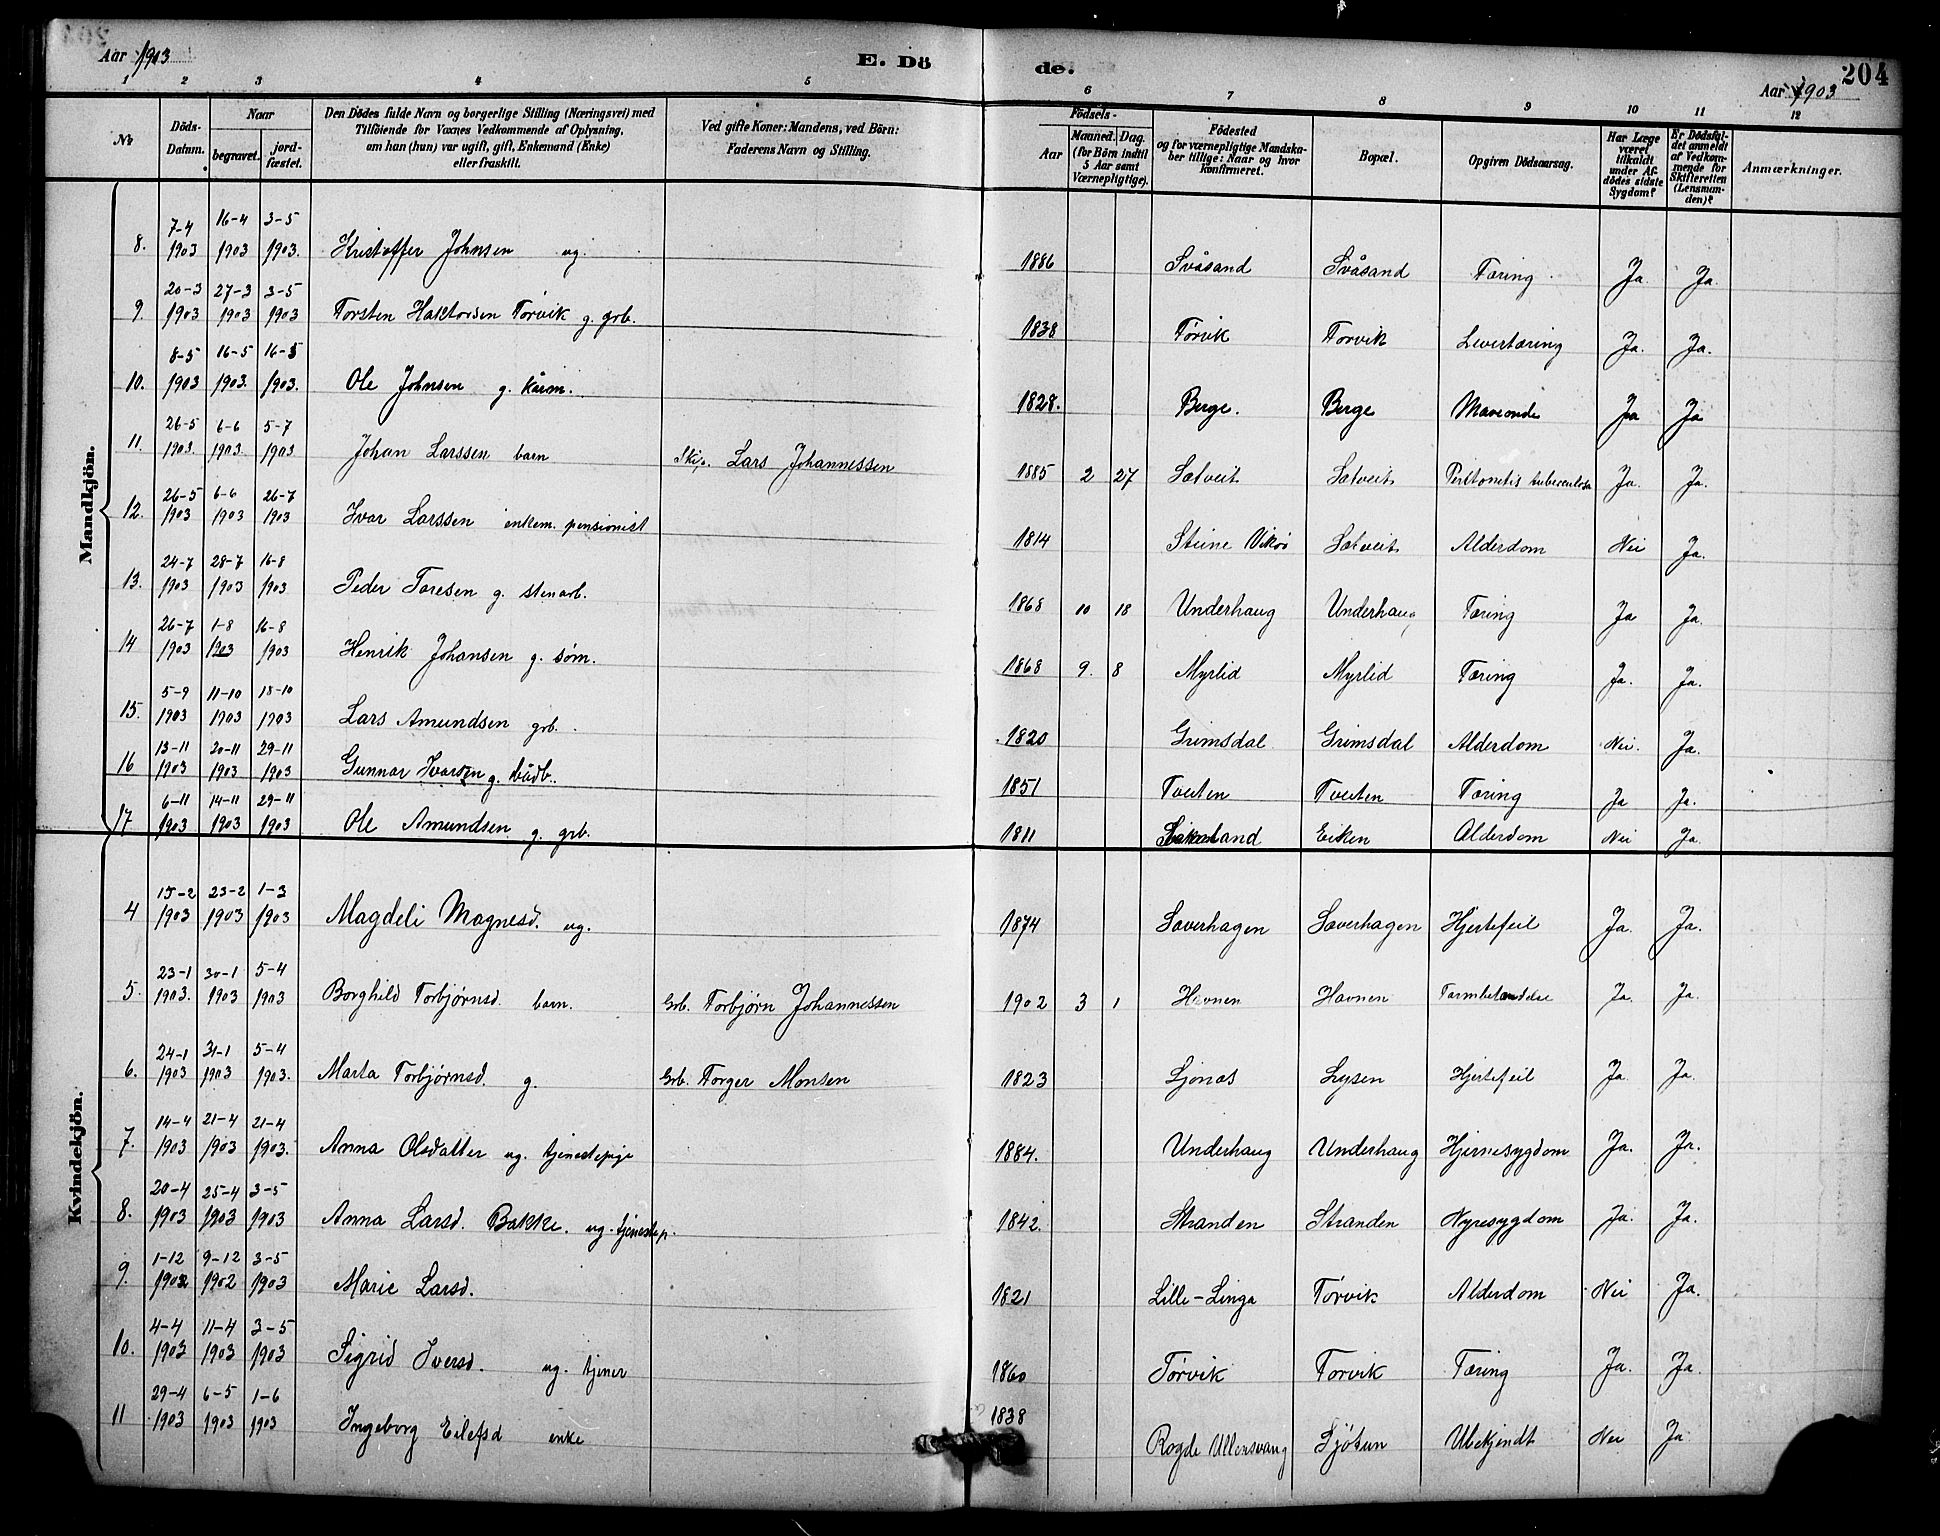 Aar 1903
E. Dö
de.
204
Aar 1903
1 2 3 4 5 6 7 8 9 10 11 12
№
Döds-Datum.
Naar
begravet.
jord-fæstet.
Den Dödes fulde Navn og borgerlige Stilling (Næringsvei) med
Tilföiende for Voxnes Vedkommende af Oplysning,
om han (hun) var ugift, gift, Enkemand (Enke)
eller fraskilt.
Ved gifte Koner: Mandens, ved Börn:
Faderens Navn og Stilling.
Födsels-
Aar
Maaned. Dag.
(for Börn indtil
5 Aar samt
Værnepligtige).
Födested
og for værnepligtige Mandska-
ber tillige: Naar og hvor
konfirmeret.
Bopæl.
Opgiven Dödsaarsag.
Har Læge
været
tilkaldt
under Af-
dödes sidste
Sygdom?
Er Dödsfal-
det anmeldt
af Vedkom-
mende for
Skifteretten
(Lensman-
den)?
Anmærkninger.
Mandkjön.
8. 7-4 1903 16-4 1903 3-5 1903. Kristoffer Johnsen ug. 1886 Svåsand Svåsand Tæring. Ja. Ja.
9. 20-3 1903 27-3 1903 3-5 1903 Torsten Haktorsen Tørvik g. grb. 1838 Tørvik Torvik Levertæring Ja. Ja.
10. 8-5 1903 16-5 1903. 16-5 1903. Ole Johnsen g. kårm. 1828. Berge. Berge Maveonde Ja Ja
11. 26-5 1903. 6-6 1903. 5-7 1903 Johan Larssen barn Skip. Lars Johannessen 1885 2 27 Sætveit Sætveit tuberculosa Ja. Ja.
12. 26-5 1903 6-6 1903 26-7 1903 Ivar Larssen enkem. pensionist 1814 Steine Vikøi Sætveit Alderdom Nei Ja.
13. 24-7 1903 28-7 1903 16-8 1903 Peder Toresen g. stenarb. 1868 10 18 Underhaug Underhaug Tæring Ja Ja.
14 26-7 1903 1-8 1903 16-8 1903 Henrik Johansen g. søm. 1868 9. 8 Myrlid Myrlid Tæring Ja. Ja.
15. 5-9 1903 11-10 1903 18-10 1903 Lars Amundsen grb. 1820 Grimsdal Grimsdal Alderdom Nei. Ja.
16 13-11 1903 20-11 1903 29-11 1903 Gunnar Ivarsen g. bådb. 1851 Tveiten Tveiten Tæring Ja Ja.
17 6-11 1903 14-11 1903 29-11 1903 Ole Amundsen g. grb. 1811 Eiken Alderdom Nei Ja.
Kvindekjön.
4 15-2 1903 23-2 1903 1-3 1903 Magdeli Magnesd. ug. 1874 Saverhagen Saverhagen Hjertefeil Ja. Ja.
5. 23-1 1903. 30-1 1903 5-4 1903 Borghild Torbjørnsd. barn. Grb. Torbjørn Johannessen 1902 3 1 Havnen Havnen Ja. Ja.
6. 24-1 1903 31-1 1903 5-4 1903. Marta Torbjørnsd. g. Grb. Torger Monsen 1823 Ljonas Lysen Hjertefeil Ja. Ja.
7. 14-4 1903 21-4 1903 21-4 1903. Anna Olsdatter ug. tjenestepige 1884. Underhaug Underhaug Hjernesygdom Ja. Ja.
8. 20-4 1903 25-4 1903 3-5 1903 Anna Larsd. Bakke. ug. tjenestep. 1842. Stranden Stranden Nyresygdom Ja. Ja.
9. 1-12 1902 9-12 1902 3-5 1903 Marie Larsd. 1821 Lille-Linga Tørvik Alderdom Nei Ja.
10. 4-4 1903 11-4 1903 3-5 1903 Sigrid Iversd. ug. tjener 1860 Tørvik Torvik Tæring Ja. Ja.
11 29-4 1903 6-5 1903 1-6 1903 Ingeborg Eilefsd enke 1838 Rogde Ullensvang Sjötun Ubekjendt Nei Ja.